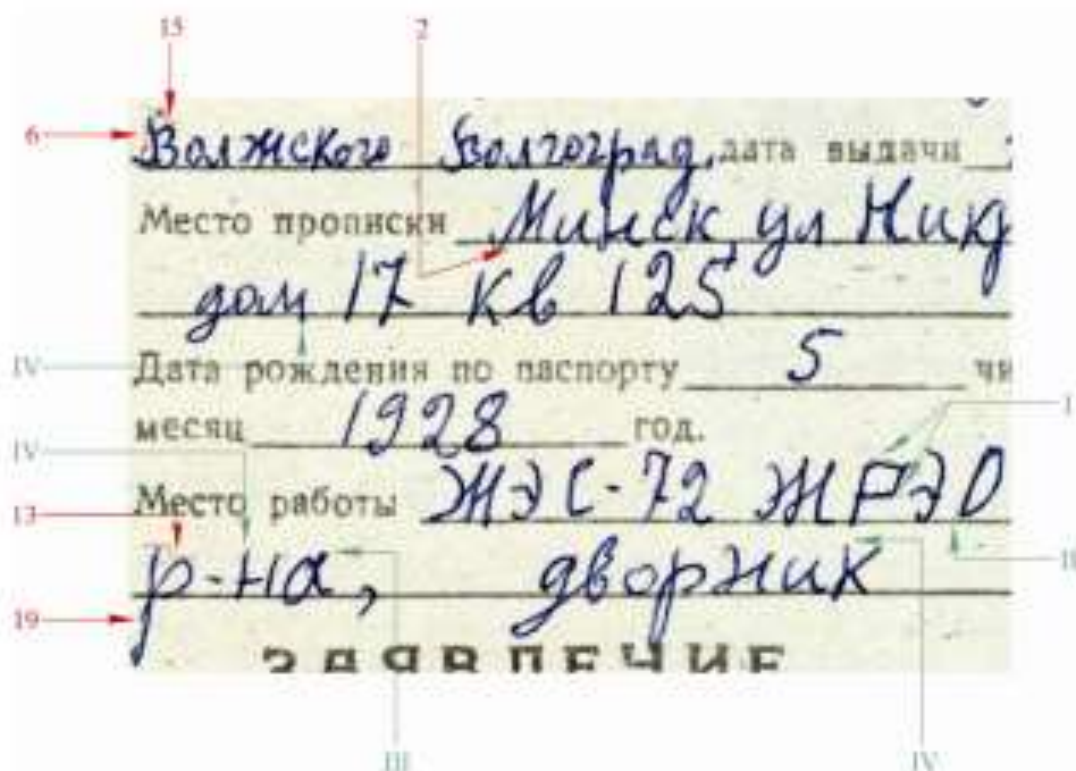 15 2
6 Волжского Волгоград, дата выдачи
Место прописки Минск, ул Ник
дом 17 кв 125
IV Дата рождения по паспорту 5 чи
I
месяц 1928 год.
IV
Место работы ЖЭС-72 ЖРЭО
13
II
р-на, дворник
19
ЗАЯВЛЕНИЕ
III IV